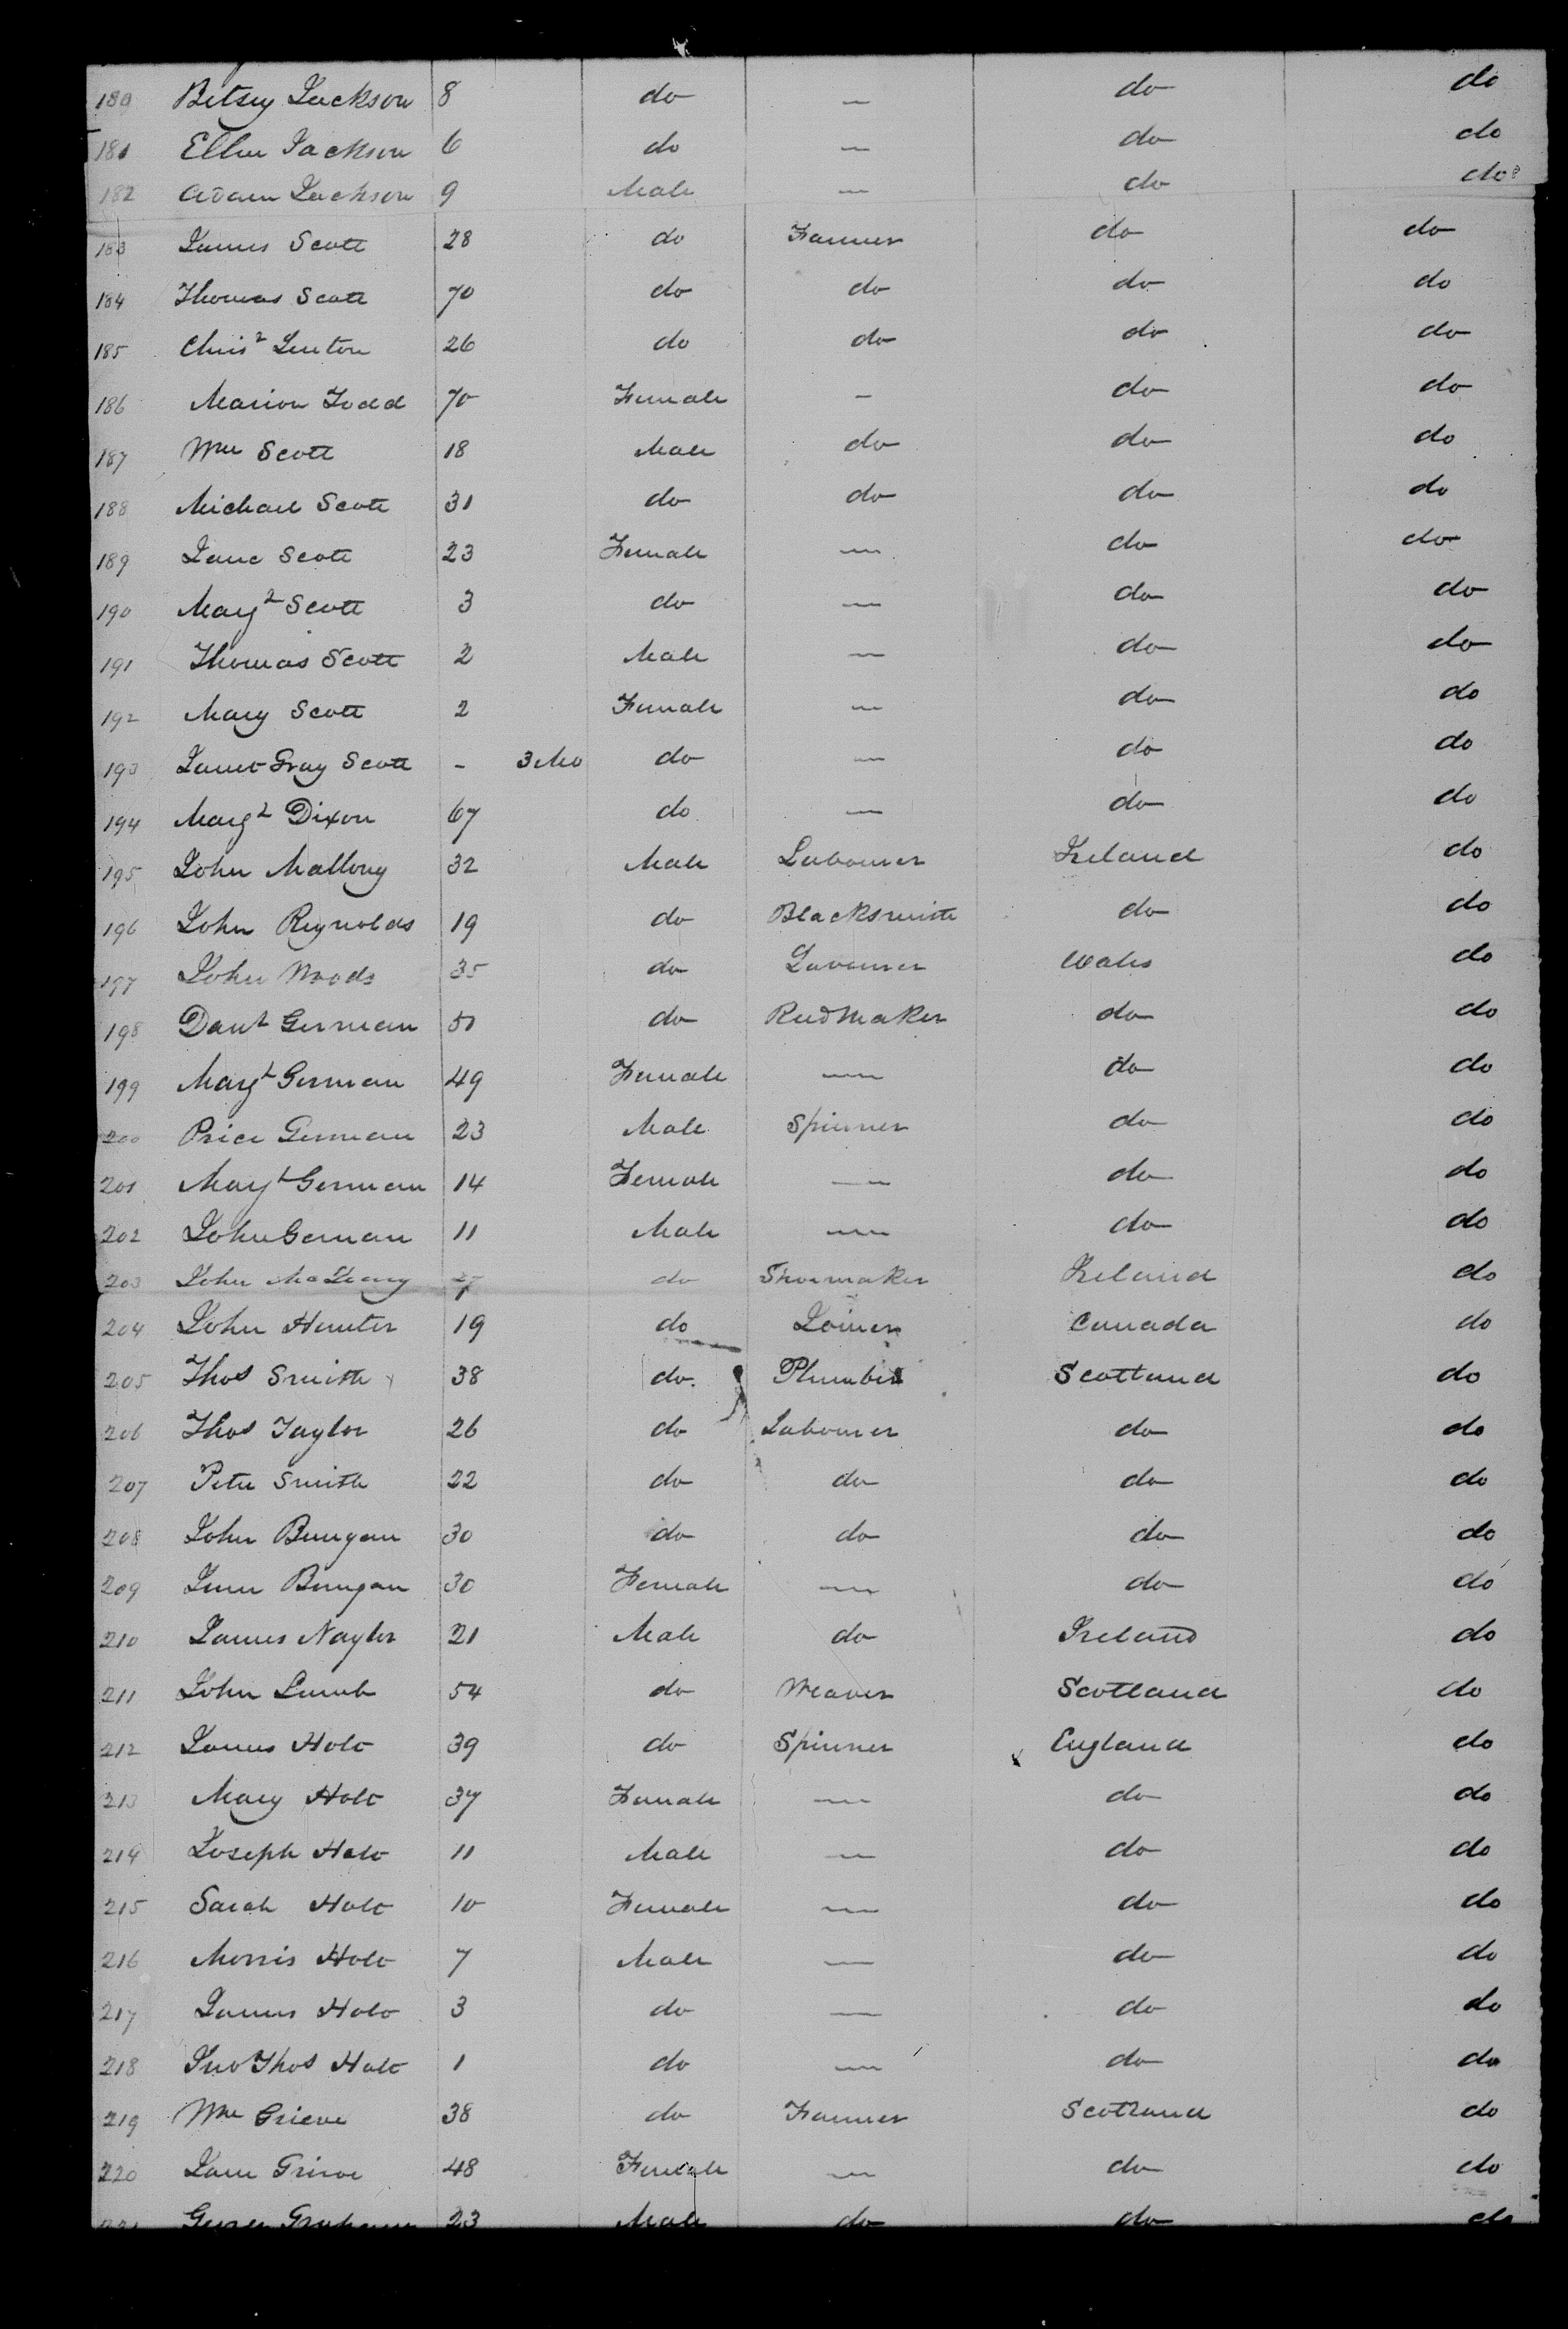 180 Betsey Jackson 8 do — do do
181 Ellen Jackson 6 do — do do
182 Adam Jackson 9 Male — do do
183 James Scott 28 do Farmer do do
184 Thomas Scott 70 do do do do
185 Chrisr Linton 26 do do do do
186 Marion Todd 70 Female - do do
187 Wm Scott 18 Male do do do
188 Michael Scott 31 do do do do
189 Jane Scott 23 Female — do do
190 Margt Scott 3 do — do do
191 Thomas Scott 2 Male — do do
192 Mary Scott 2 Female — do do
193 Janet Gray Scott - 3 Mo do — do do
194 Margt Dixon 67 do — do do
195 John Mallony 32 Male Labourer Ireland do
196 John Reynolds 19 do Blacksmith do do
197 John Woods 35 do Labourer Wales do
198 Danl German 51 do Reedmaker do do
199 Margt German 49 Female — do do
200 Price German 23 Male Spinner do do
201 Margt German 14 Female — do do
202 John German 11 Male — do do
203 John do Shoemaker Ireland do
204 John Hunter 19 do Joiner Canada do
205 Thos Smith 38 do Plumber Scotland do
206 Thos Taylor 26 do Labourer do do
207 Peter Smith 22 do do do do
208 John Bunyan 30 do do do do
209 Bunyan 30 Female — do do
210 James Naylor 21 Male do Ireland do
211 John Lamb 54 do Weaver Scotland do
212 James Holt 39 do Spinner England do
213 Mary Holt 37 Female — do do
214 Joseph Holt 11 Male — do do
215 Sarah Holt 10 Female — do do
216 Morris Holt 7 Male — do do
217 James Holt 3 do — do do
218 Jno Thos Holt 1 do — do do
219 Wm Grieve 38 do Farmer Scotland do
220 Jane Grieve 48 Female — do do
221 George Graham 23 Male do do do